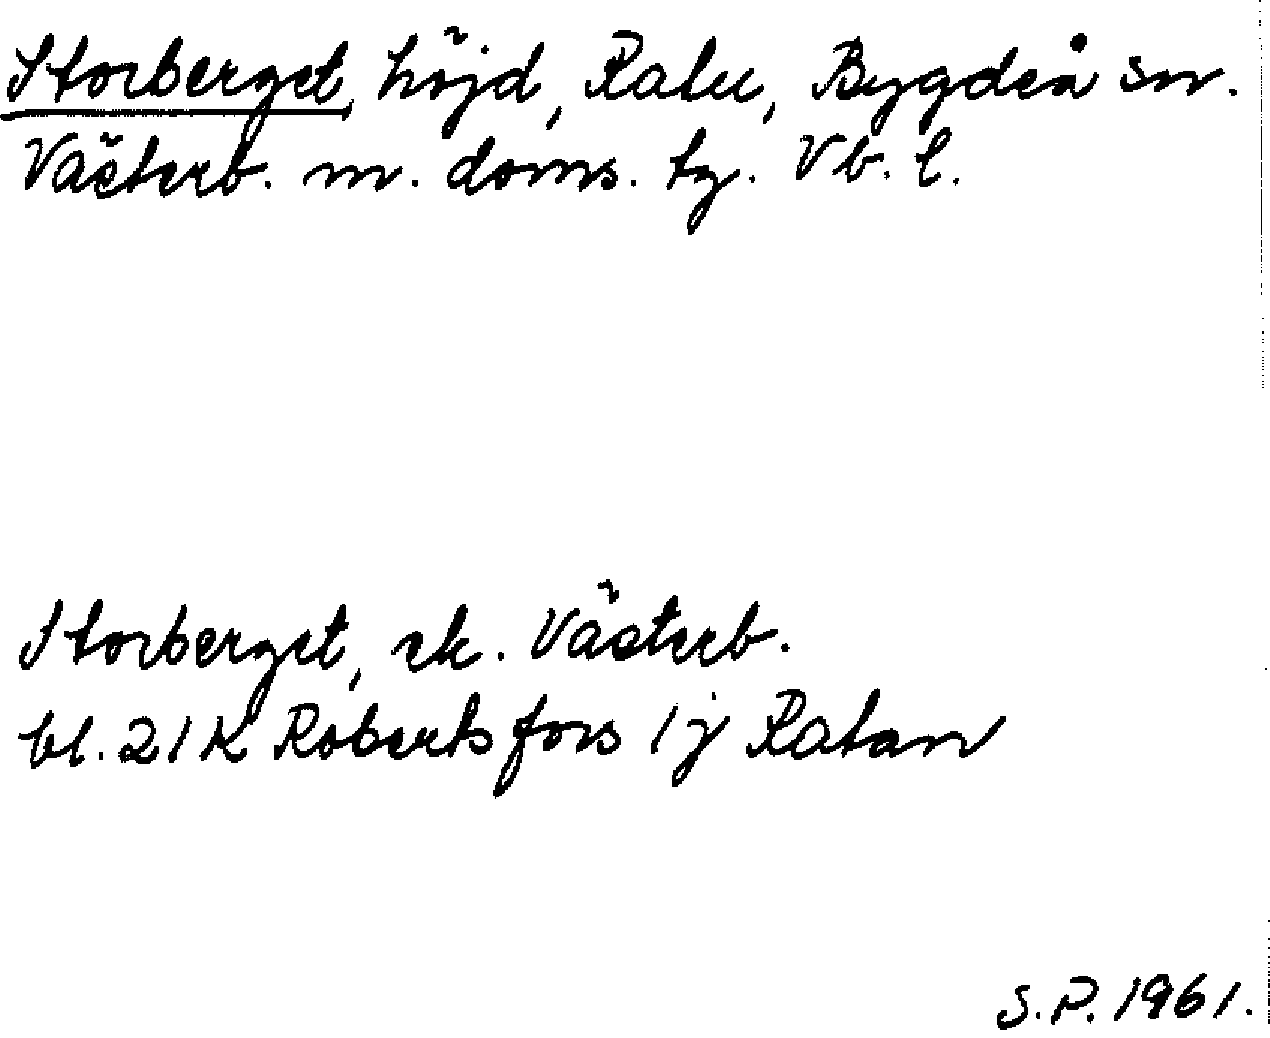 Storberget, höjd, Ralu, Bygdeå sn.
Västerb. m. doms. tg. Vb. l.
Storberget, ek. Västerb.
bl. 21K Robertsfors 1j Ratan
S.P. 1961.